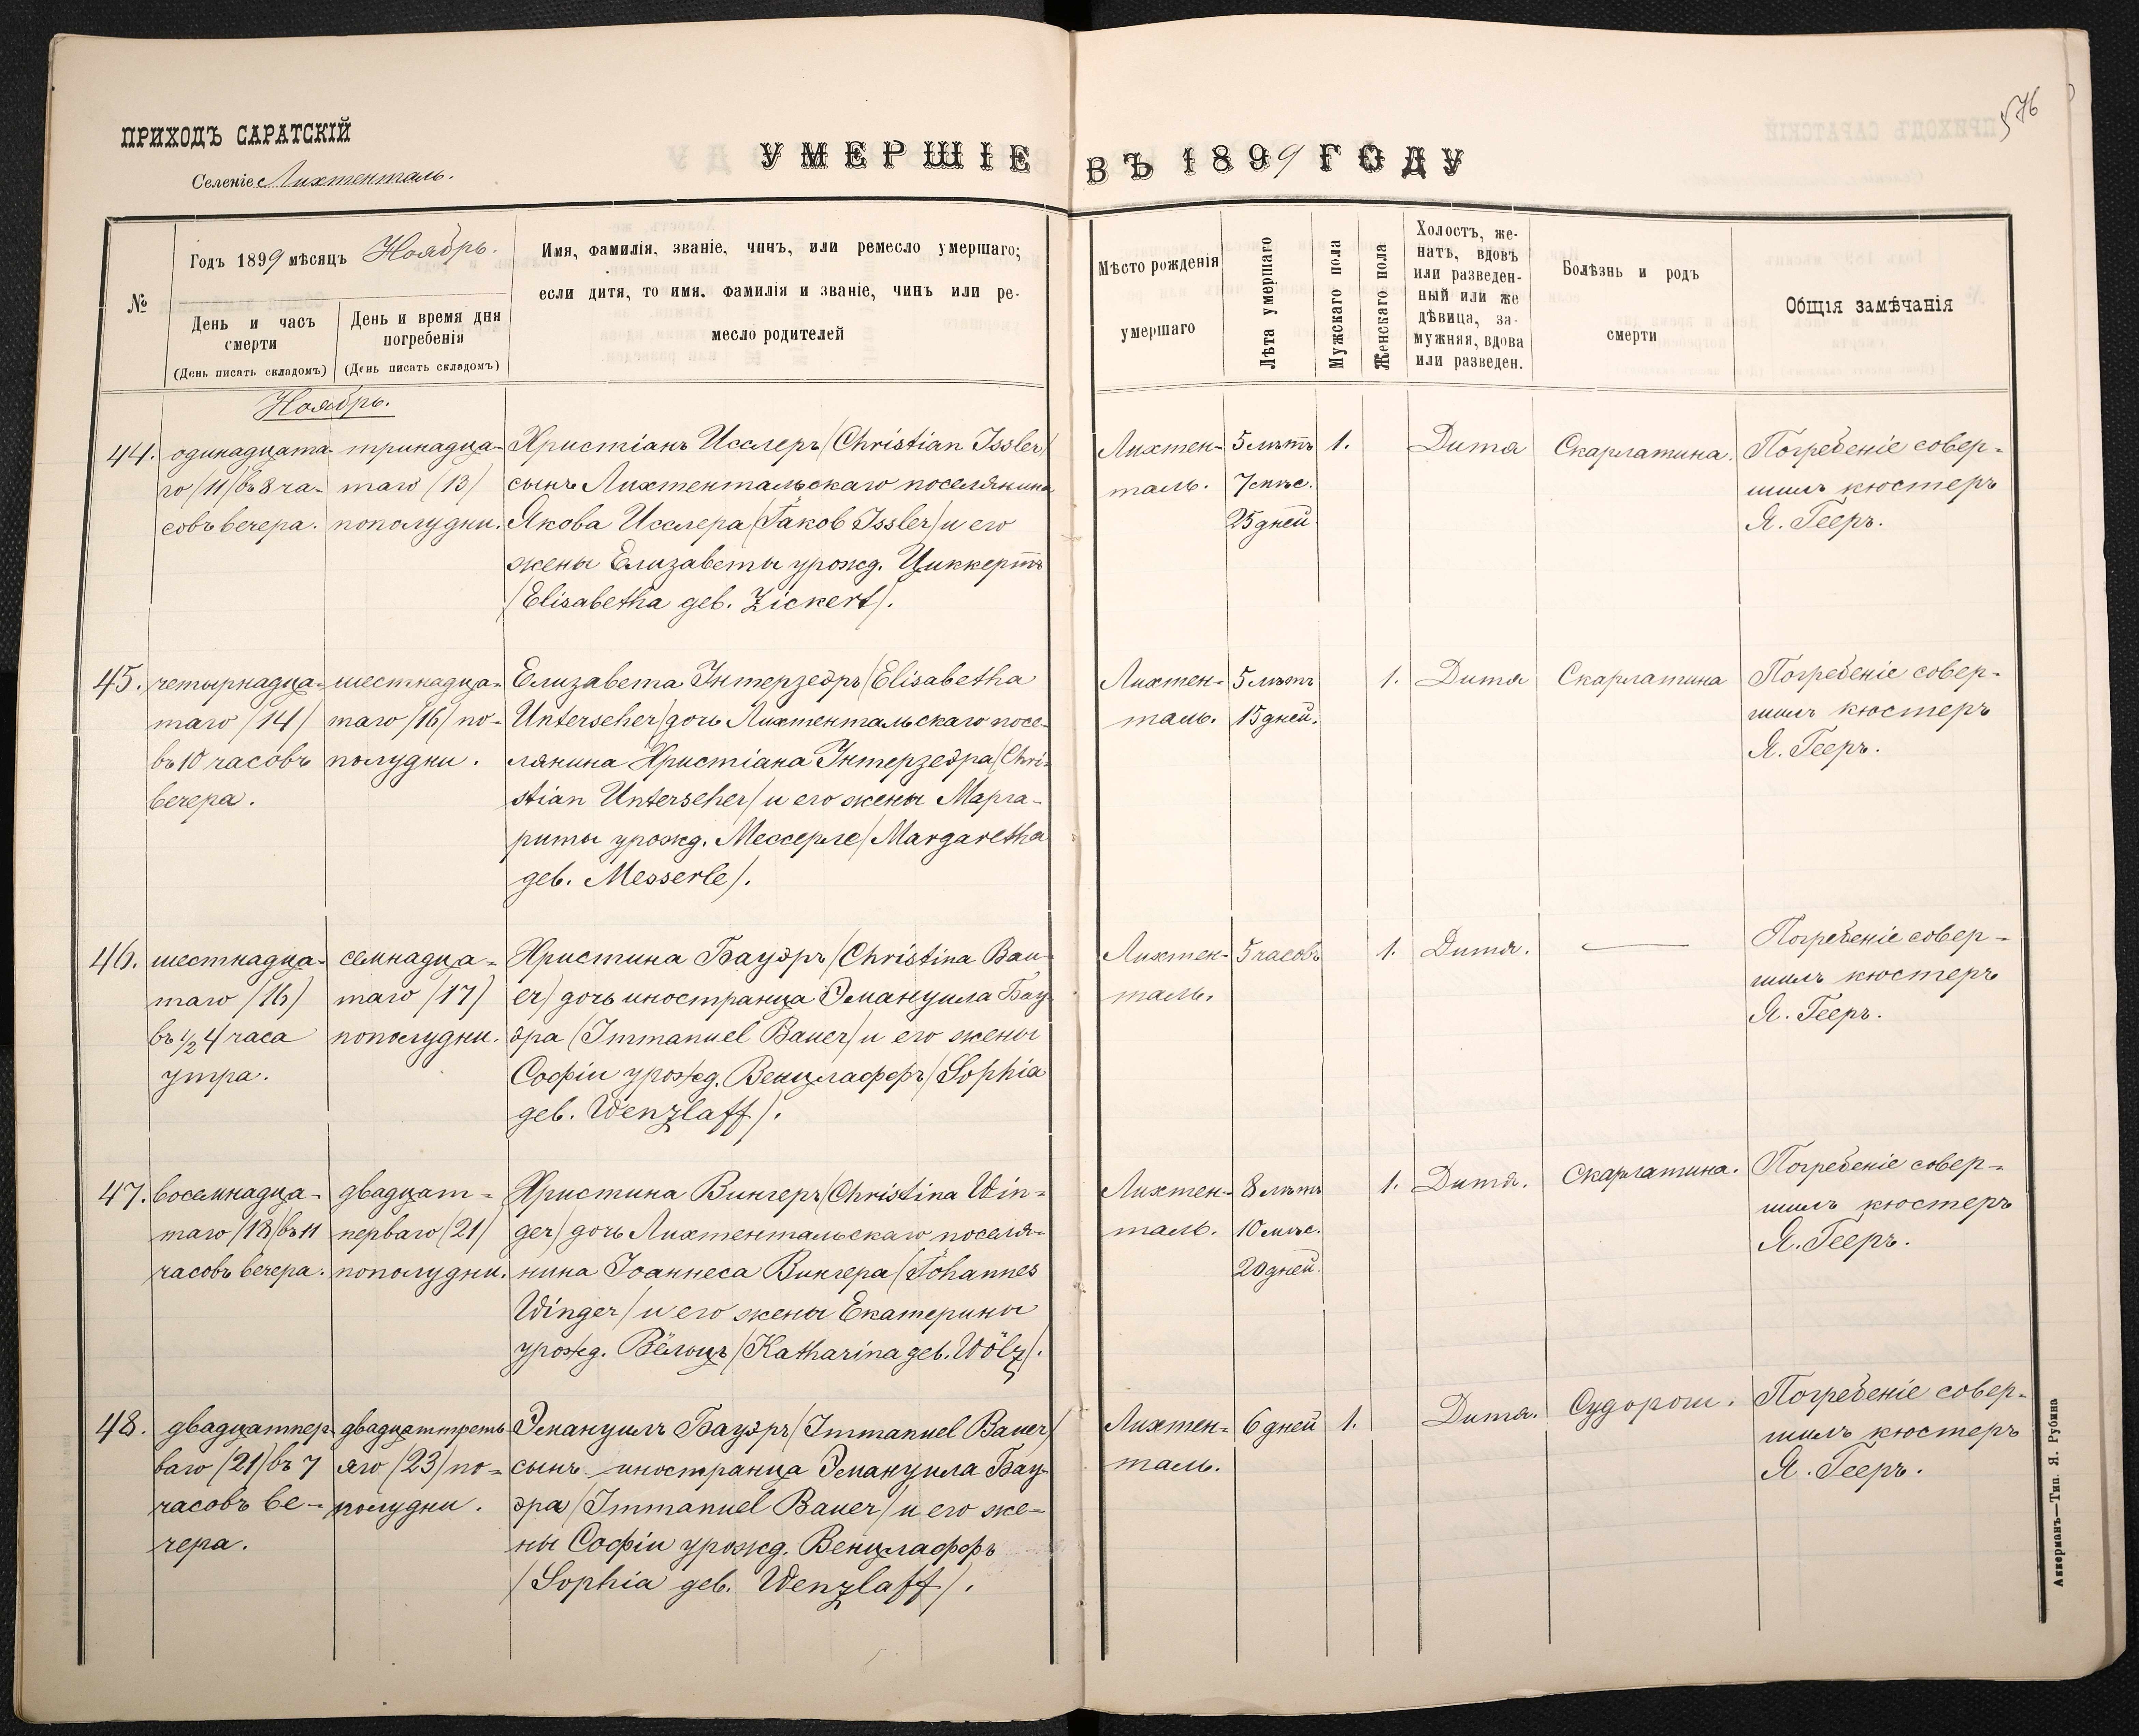 576
ПРИХОДЪ САРАТСКІЙ
Селеніе Лихтенталь.
УМЕРШІЕ ВЪ 1899 ГОДУ
№
Годъ 1899 мѣсяцъ Ноябрь.
День и часъ
смерти
(День писать складомъ)
День и время дня
погребенія
(День писать складомъ)
Имя, фамилія, званіе, чинъ, или ремесло умершаго;
если дитя, то имя. фамилія и званіе, чинъ или ре-
месло родителей
Мѣсто рожденія
умершаго
Лѣта умершаго
Мужскаго пола
Женскаго пола
Холостъ, же-
натъ, вдовъ
или разведен-
ный или же
дѣвица, за-
мужняя, вдова
или разведен.
Болѣзнь и родъ
смерти
Общія замѣчанія
Ноябрь.
44.
одинадцата-
го /11/ въ 8 ча-
совъ вечера.
тринадца-
таго /13/
пополудни.
Христіанъ Исслеръ /Christian Issler/
сынъ Лихтентальскаго поселянина
Якова Исслера /Jakob Issler/ и его
жены Елизаветы урожд. Циккертъ
/Elisabetha geb. Zickert/.
Лихтен-
таль.
5 лѣтъ
7 мѣс.
25 дней.
1.
Дитя
Скарлатина.
Погребеніе совер-
шилъ кюстеръ
Я. Гееръ.
45.
четырнадца-
таго /14/
въ 10 часовъ
вечера.
шестнадца-
таго /16/ по-
полудни.
Елизавета Унтерзеэръ /Elisabetha
Unterseher/ дочь Лихтентальскаго посе-
лянина Христіана Унтерзеэра /Chri-
stian Unterseher/ и его жены Марга-
риты урожд. Мессерле /Margaretha
geb. Messerle/.
Лихтен-
таль.
5 лѣтъ
15 дней.
1.
Дитя
Скарлатина
Погребеніе совер-
шилъ кюстеръ
Я. Гееръ.
46.
шестнадца-
таго /16/
въ 1/2 4 часа
утра.
семнадца-
таго /17/
пополудни.
Христина Бауэръ /Christina Bau-
er/ дочь иностранца Эмануила Бау-
эра /Immanuel Bauer/ и его жены
Софіи урожд. Венцлаффъ /Sophia
geb. Wenzlaff/.
Лихтен-
таль.
5 часовъ
1.
Дитя.
—
Погребеніе совер-
шилъ кюстеръ
Я. Гееръ.
47.
восемнадца-
таго /18/ въ 11
часовъ вечера.
двадцат-
перваго /21/
пополудни.
Христина Вингеръ /Christina Win-
ger/ дочь Лихтентальскаго поселя-
нина Іоаннеса Вингера /Johannes
Winger/ и его жены Екатерины
урожд. Вёльцъ /Katharina geb. Wölz/.
Лихтен-
таль.
8 лѣтъ
10 мѣс.
20 дней.
1.
Дитя.
Скарлатина.
Погребеніе совер-
шилъ кюстеръ
Я. Гееръ.
48.
двадцатпер-
ваго /21/ въ 7
часовъ ве-
чера.
двадцаттреть-
яго /23/ по-
полудни.
Эмануилъ Бауэръ /Immanuel Bauer/
сынъ иностранца Эмануила Бау-
эра /Immanuel Bauer/ и его же-
ны Софіи урожд. Венцлаффъ
/Sophia geb. Wenzlaff/.
Лихтен-
таль.
6 дней
1.
Дитя.
Судороги.
Погребеніе совер-
шилъ кюстеръ
Я. Гееръ.
Аккерманъ—Тип. Я. Рубина